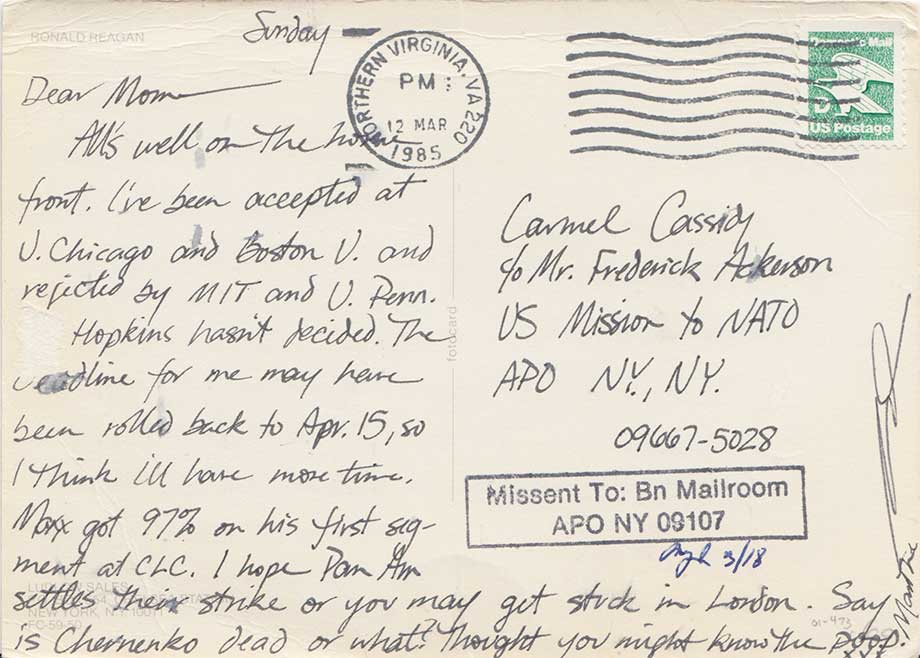 RONALD REAGAN
Sunday
Dear Mom
All's well on the home
front. I've been accepted at
U. Chicago and Boston U. and
rejected by MIT and U. Penn.
Hopkins hasn't decided. The
deadline for me may have
been rolled back to Apr. 15, so
I think I'll have more time.
Maxx got 97% on his first seg-
ment at CLC. I hope Pan Am
settles their strike or you may get stuck in London. Say
is Chernenko dead or what? Thought you might know the poop.
Martie
XXX
LUDLOW SALES
NEW YORK, N.Y. 1001
FC-59-50
fotocard
NORTHERN VIRGINIA, VA 220
PM
12 MAR
1985
Mail
D
US Postage
Carmel Cassidy
c/o Mr. Frederick Ackerson
US Mission to NATO
APO N.Y., N.Y.
09667-5028
Missent To: Bn Mailroom
APO NY 09107
3/18
01-473